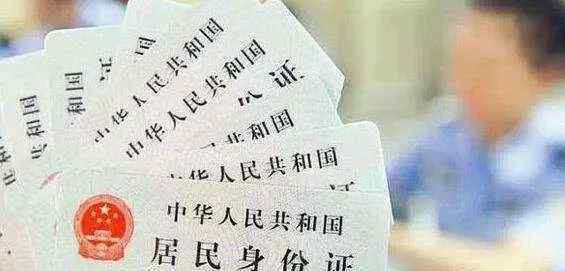 共和国
中华人民共和国
中华人民共和国
份证
共和国
人民共和国
证
中华人民共和国
居民身份证